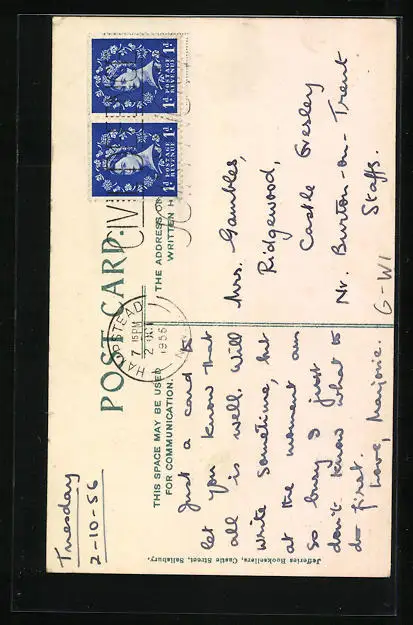 Tuesday
2-10-56
POST CARD.
THIS SPACE MAY BE USED
FOR COMMUNICATION.
THE ADDRESS
WRITTEN
HAMPSTEAD
7 15 PM
2 OCT
1956
N.W.
POSTAGE
REVENUE
1D 1D
POSTAGE
REVENUE
1D 1D
Just a card to
let you know that
all is well. Will
write sometime, but
at the moment am
so busy I just
don't know what to
do first.
Love, Marjorie.
Mrs. Gambles,
Ridgewood,
Castle Gresley
Nr. Burton-on-Trent
Staffs.
G-W1
Jefferies Booksellers, Castle Street, Salisbury.